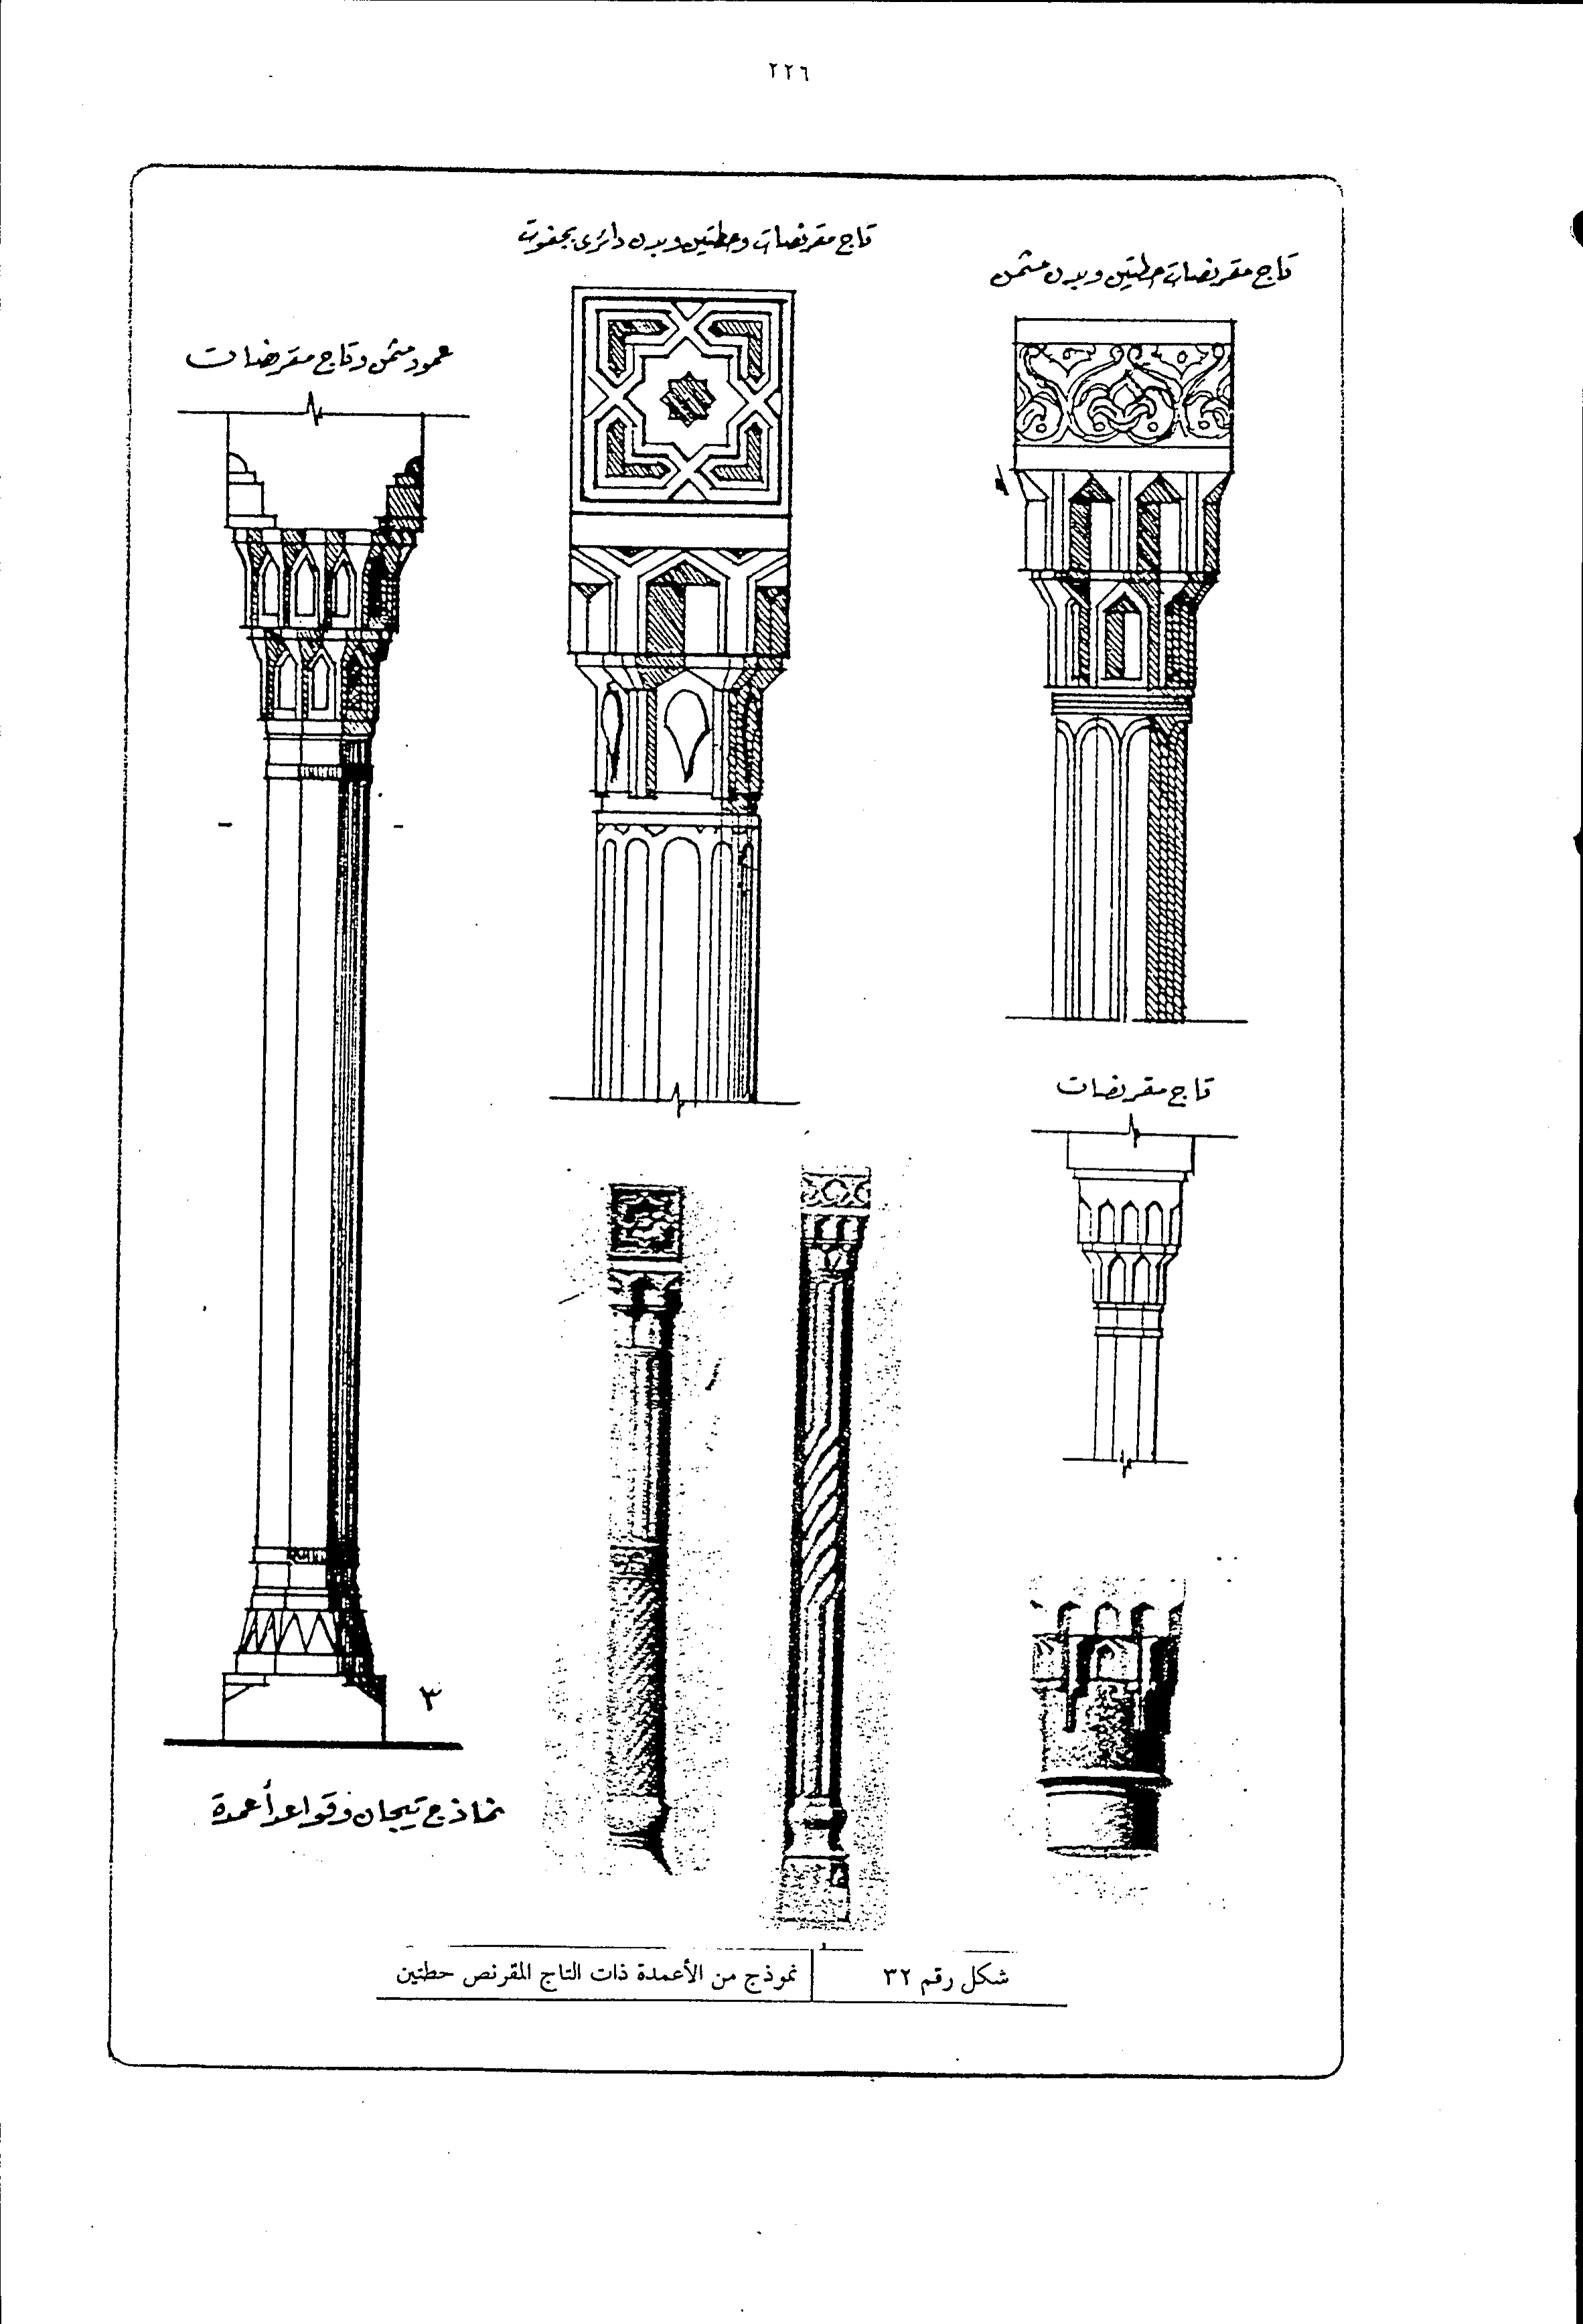 ٢٢٦
تاج مقرنصات حطتين وبدن مثمن
تاج مقرنصات وحطتين وبدن دائرى بجفوت
عمود مثمن وتاج مقرنصات
تاج مقرنصات
٣
نماذج تيجان وقواعد أعمدة
شكل رقم ٣٢
نموذج من الأعمدة ذات التاج المقرنص حطتين